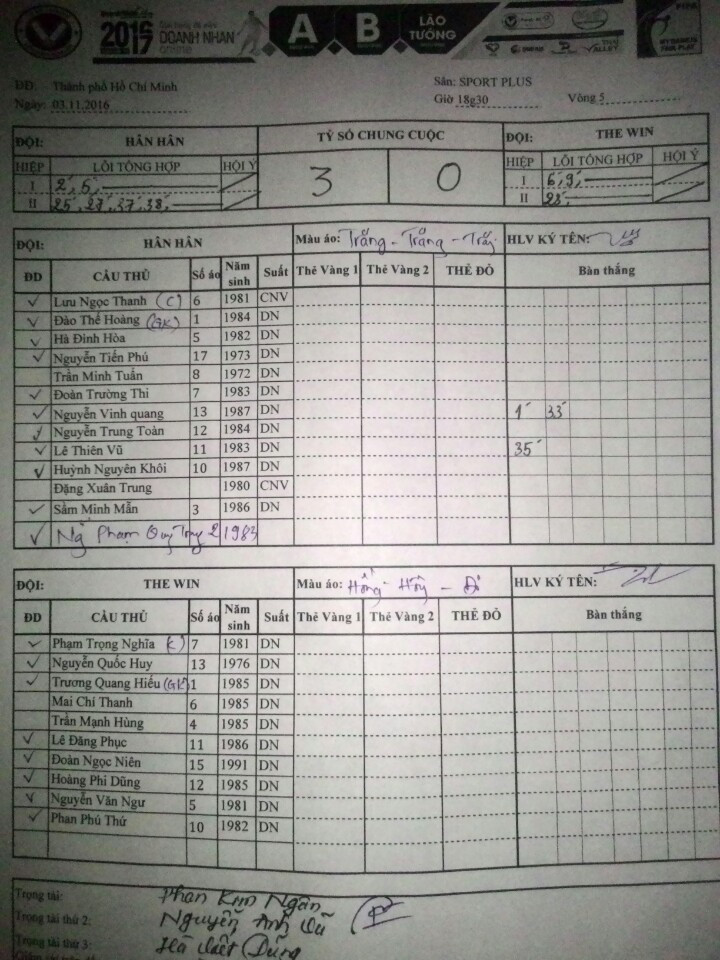 2016 DOANH NHÂN A B LÃO TƯỚNG
online
ĐĐ: Thành phố Hồ Chí Minh Sân: SPORT PLUS
Ngày: 03.11.2016 Giờ 18g30 Vòng 5
ĐỘI: HÂN HÂN TỶ SỐ CHUNG CUỘC ĐỘI: THE WIN
HIỆP LỖI TỔNG HỢP HỘI Ý 3 0 HIỆP LỖI TỔNG HỢP HỘI Ý
I 2', 5' I 6', 9'
II 25', 27', 37', 38' II 23'
ĐỘI: HÂN HÂN Màu áo: Trắng - Trắng - Trắng HLV KÝ TÊN:
ĐD CẦU THỦ Số áo Năm sinh Suất Thẻ Vàng 1 Thẻ Vàng 2 THẺ ĐỎ Bàn thắng
✓ Lưu Ngọc Thanh (C) 6 1981 CNV
✓ Đào Thế Hoàng (GK) 1 1984 DN
✓ Hà Đình Hòa 5 1982 DN
✓ Nguyễn Tiến Phú 17 1973 DN
Trần Minh Tuấn 8 1972 DN
✓ Đoàn Trường Thi 7 1983 DN
✓ Nguyễn Vinh quang 13 1987 DN 1' 33'
✓ Nguyễn Trung Toàn 12 1984 DN
✓ Lê Thiên Vũ 11 1983 DN 35'
✓ Huỳnh Nguyên Khôi 10 1987 DN
Đặng Xuân Trung 1980 CNV
✓ Sầm Minh Mẫn 3 1986 DN
✓ Ng Phạm Quý 2 1983
ĐỘI: THE WIN Màu áo: Hồng - Hồng - Đỏ HLV KÝ TÊN:
ĐD CẦU THỦ Số áo Năm sinh Suất Thẻ Vàng 1 Thẻ Vàng 2 THẺ ĐỎ Bàn thắng
✓ Phạm Trọng Nghĩa 7 1981 DN
✓ Nguyễn Quốc Huy 13 1976 DN
✓ Trương Quang Hiếu (GK) 1 1985 DN
Mai Chí Thanh 6 1985 DN
Trần Mạnh Hùng 4 1985 DN
✓ Lê Đăng Phục 11 1986 DN
✓ Đoàn Ngọc Niên 15 1991 DN
✓ Hoàng Phi Dũng 12 1985 DN
✓ Nguyễn Văn Ngư 5 1981 DN
✓ Phan Phú Thứ 10 1982 DN
Trọng tài: Phan Kim Ngân
Trọng tài thứ 2: Nguyễn Anh Vũ
Trọng tài thứ 3: Hà Việt Dũng